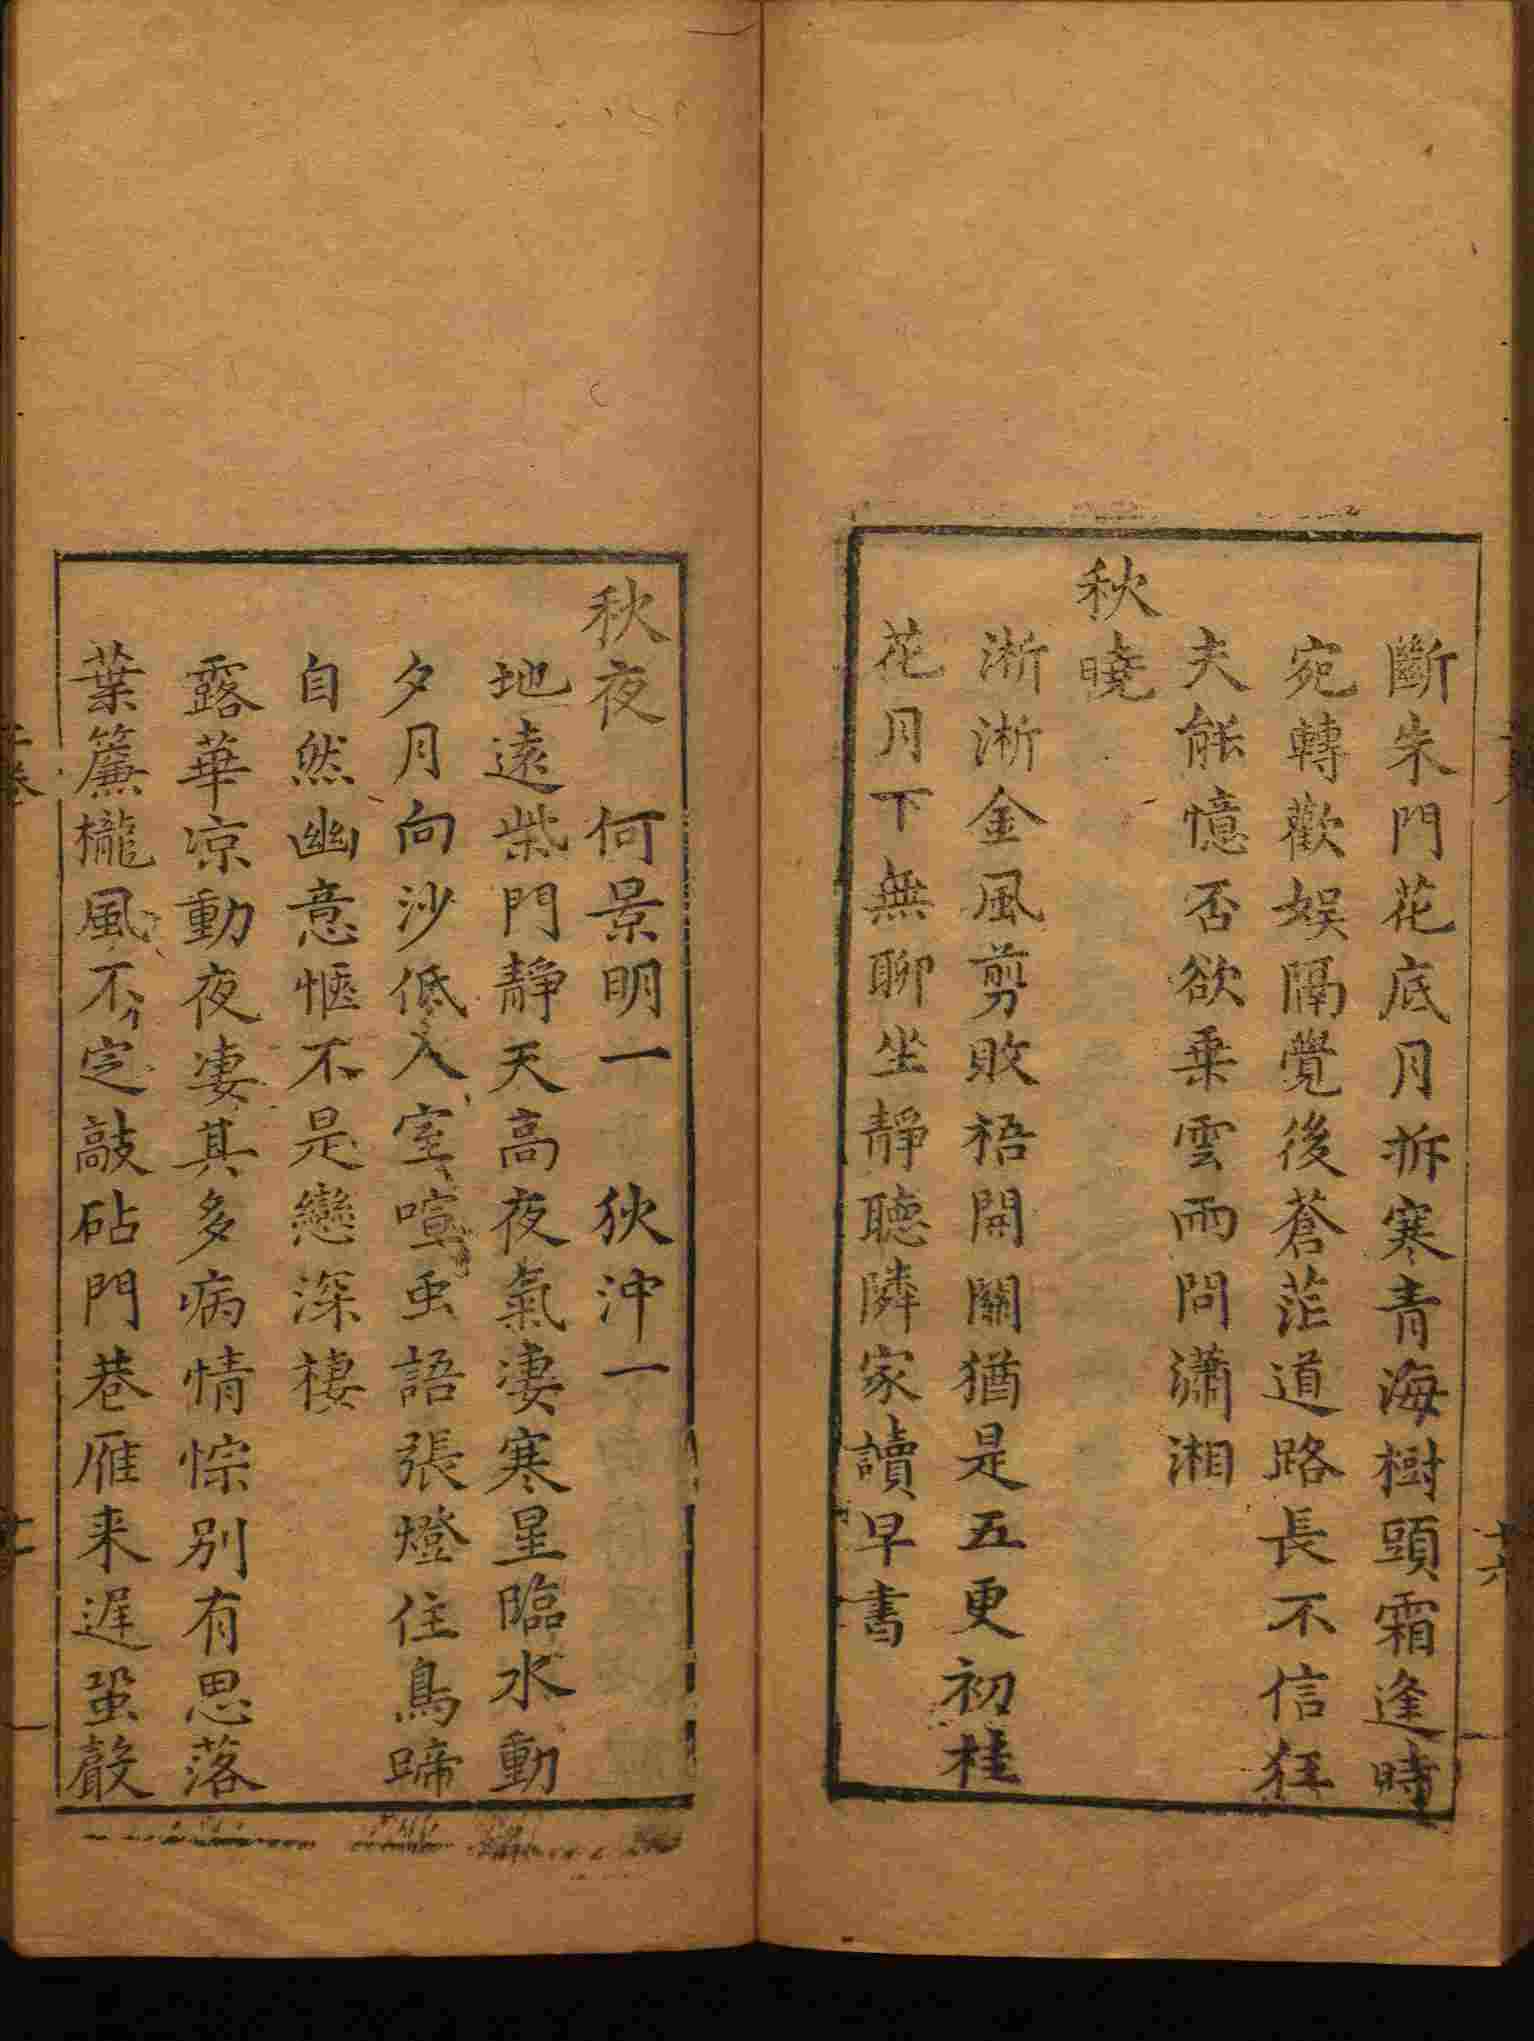 斷朱門花底月拆寒青海樹頭霜逢時
宛轉歡娛隔覺後蒼茫道路長不信狂
夫能憶否欲乗雲雨問瀟湘
秋曉
淅淅金風剪敗梧開關猶是五更初桂
花月下無聊坐靜聽隣家讀早書
十六
秋夜 何景明一 狄沖一
地遠柴門靜天高夜氣淒寒星臨水動
夕月向沙低入室喧虫語張燈住鳥蹄
自然幽意愜不是戀深棲
露華凉動夜淒其多病情悰別有思落
葉簾櫳風不定敲砧門巷雁来遅蛩聲